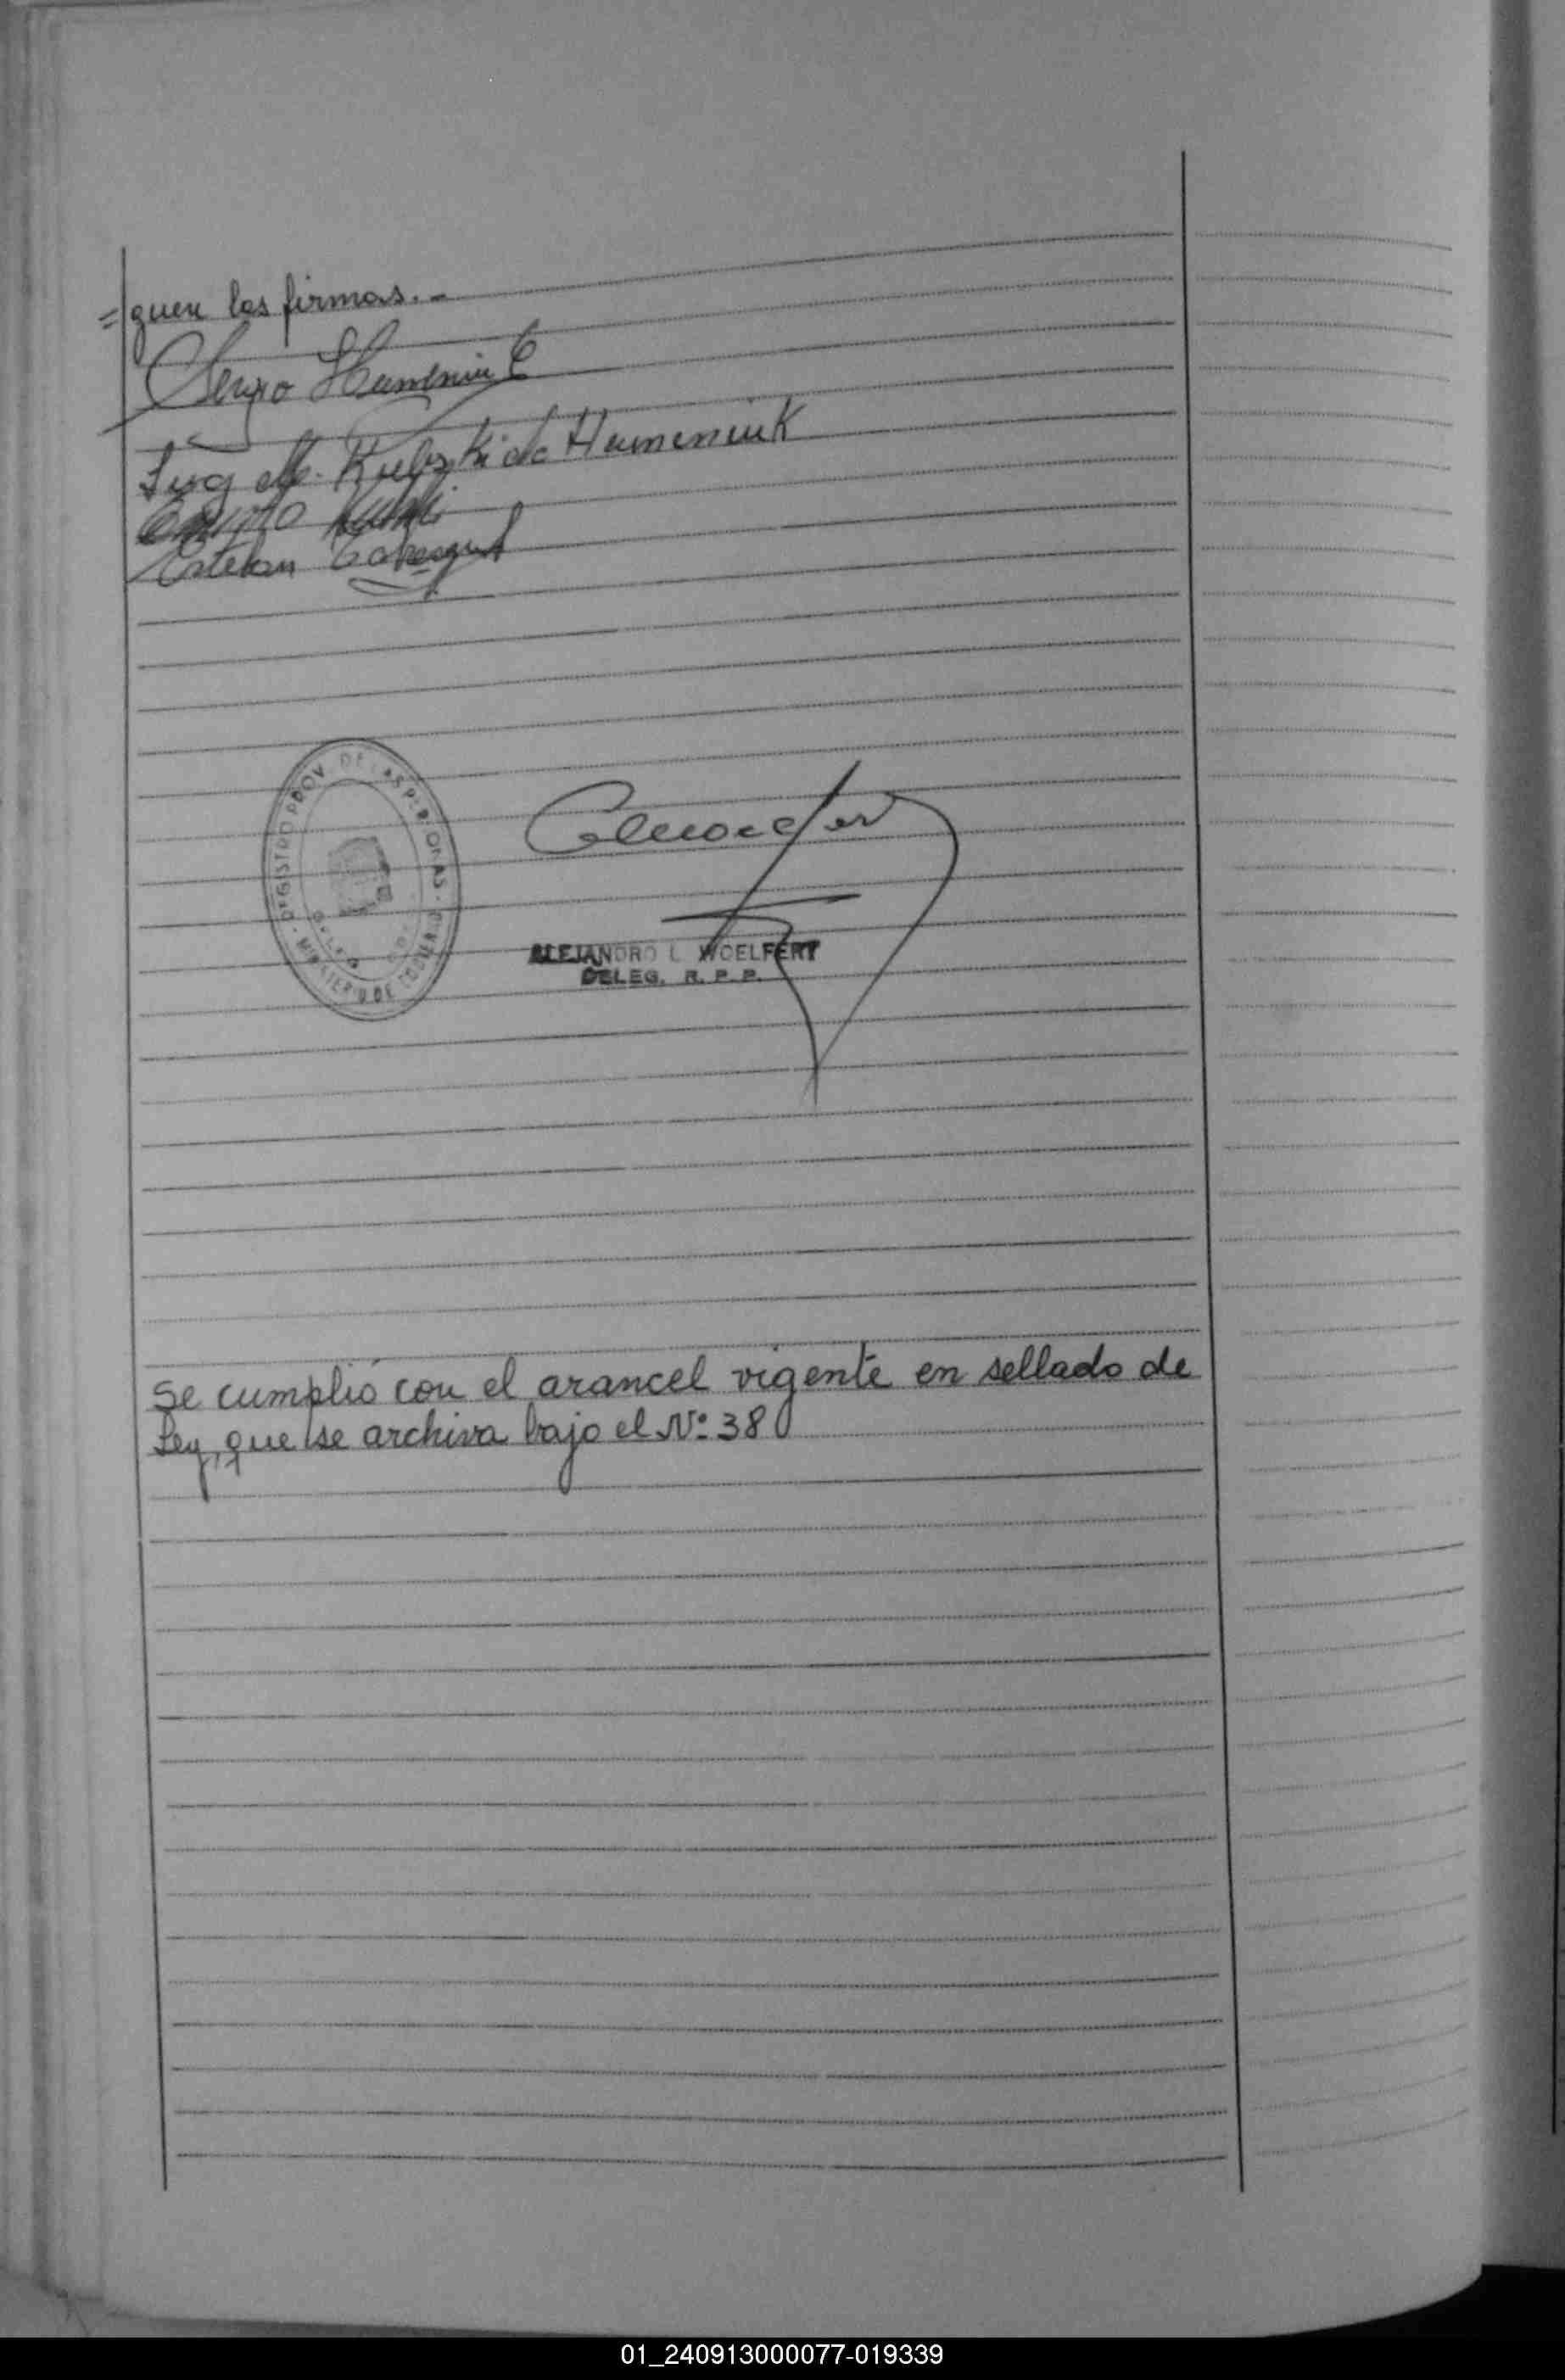 =quen las firmas.-
Sergio Humeniuk
M. Kubski de Humeniuk
Esteban
REGISTRO PROV. DE LAS PERSONAS - MINISTERIO DE
ALEJANDRO L. WOELFERT
DELEG. R. P. P.
Se cumplió con el arancel vigente en sellado de
Ley, que se archiva bajo el Nº 38
01_240913000077-019339